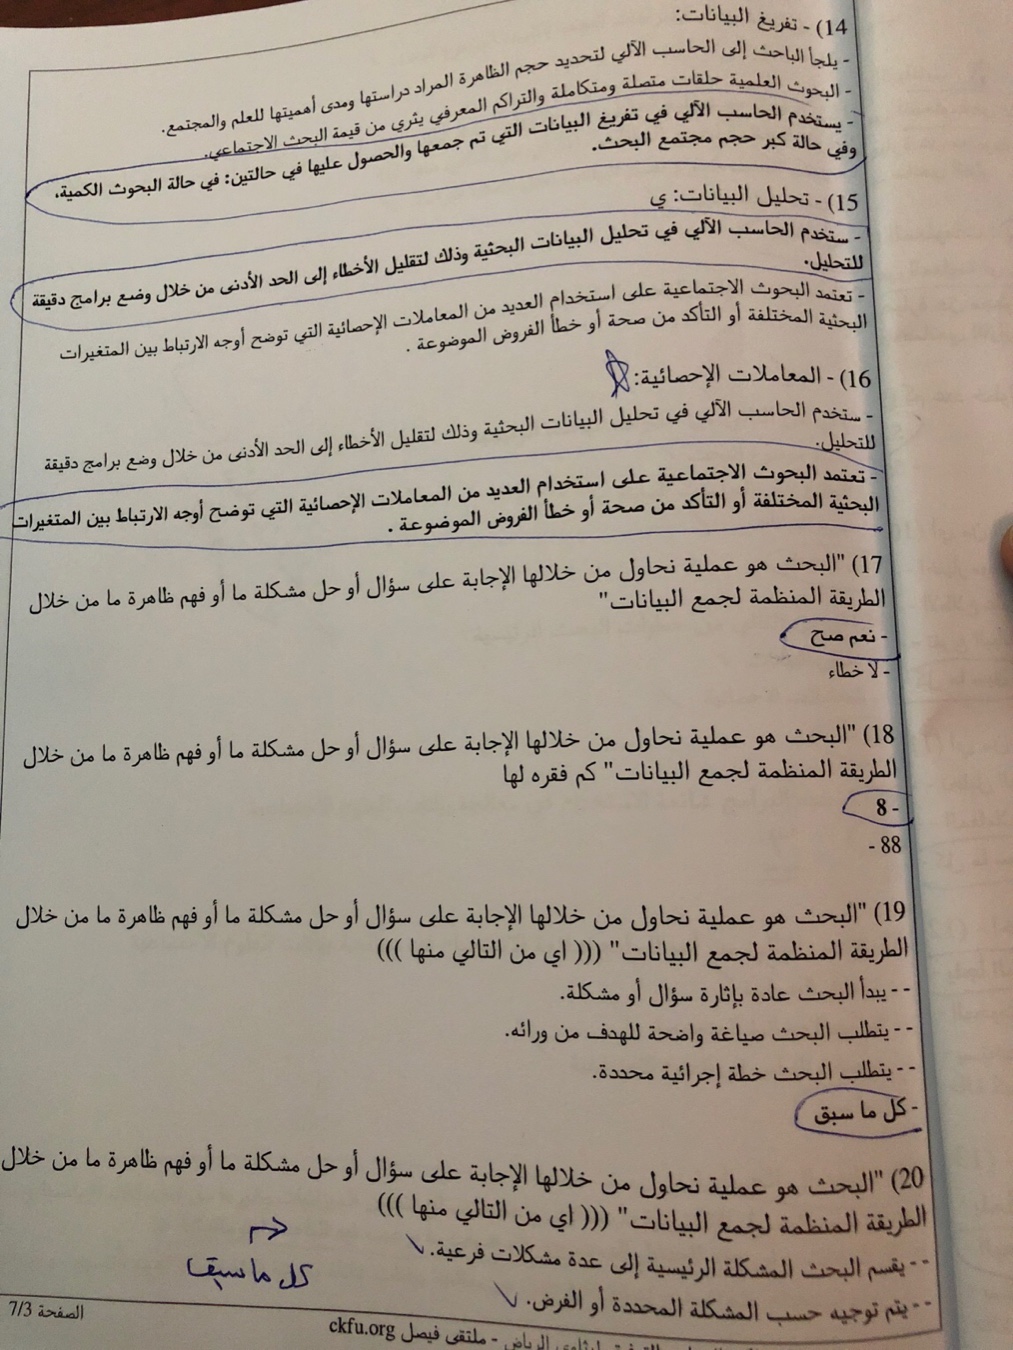 14) - تفريغ البيانات:
- يلجأ الباحث إلى الحاسب الآلي لتحديد حجم الظاهرة المراد دراستها ومدى أهميتها للعلم والمجتمع.
- البحوث العلمية حلقات متصلة ومتكاملة والتراكم المعرفي يثري من قيمة البحث الاجتماعي.
- يستخدم الحاسب الآلي في تفريغ البيانات التي تم جمعها والحصول عليها في حالتين: في حالة البحوث الكمية،
وفي حالة كبر حجم مجتمع البحث.
15) - تحليل البيانات: ي
- ستخدم الحاسب الآلي في تحليل البيانات البحثية وذلك لتقليل الأخطاء إلى الحد الأدنى من خلال وضع برامج دقيقة
للتحليل.
- تعتمد البحوث الاجتماعية على استخدام العديد من المعاملات الإحصائية التي توضح أوجه الارتباط بين المتغيرات
البحثية المختلفة أو التأكد من صحة أو خطأ الفروض الموضوعة .
16) - المعاملات الإحصائية:
- ستخدم الحاسب الآلي في تحليل البيانات البحثية وذلك لتقليل الأخطاء إلى الحد الأدنى من خلال وضع برامج دقيقة
للتحليل.
- تعتمد البحوث الاجتماعية على استخدام العديد من المعاملات الإحصائية التي توضح أوجه الارتباط بين المتغيرات
البحثية المختلفة أو التأكد من صحة أو خطأ الفروض الموضوعة .
17) "البحث هو عملية نحاول من خلالها الإجابة على سؤال أو حل مشكلة ما أو فهم ظاهرة ما من خلال
الطريقة المنظمة لجمع البيانات"
- نعم صح
- لا خطاء
18) "البحث هو عملية نحاول من خلالها الإجابة على سؤال أو حل مشكلة ما أو فهم ظاهرة ما من خلال
الطريقة المنظمة لجمع البيانات" كم فقره لها
- 8
- 88
19) "البحث هو عملية نحاول من خلالها الإجابة على سؤال أو حل مشكلة ما أو فهم ظاهرة ما من خلال
الطريقة المنظمة لجمع البيانات" ((( اي من التالي منها )))
- - يبدأ البحث عادة بإثارة سؤال أو مشكلة.
- - يتطلب البحث صياغة واضحة للهدف من ورائه.
- - يتطلب البحث خطة إجرائية محددة.
- كل ما سبق
20) "البحث هو عملية نحاول من خلالها الإجابة على سؤال أو حل مشكلة ما أو فهم ظاهرة ما من خلال
الطريقة المنظمة لجمع البيانات" ((( اي من التالي منها )))
- - يقسم البحث المشكلة الرئيسية إلى عدة مشكلات فرعية.
- - يتم توجيه حسب المشكلة المحددة أو الفرض.
كل ما سبق
الصفحة 7/3
الرياض - ملتقى فيصل ckfu.org